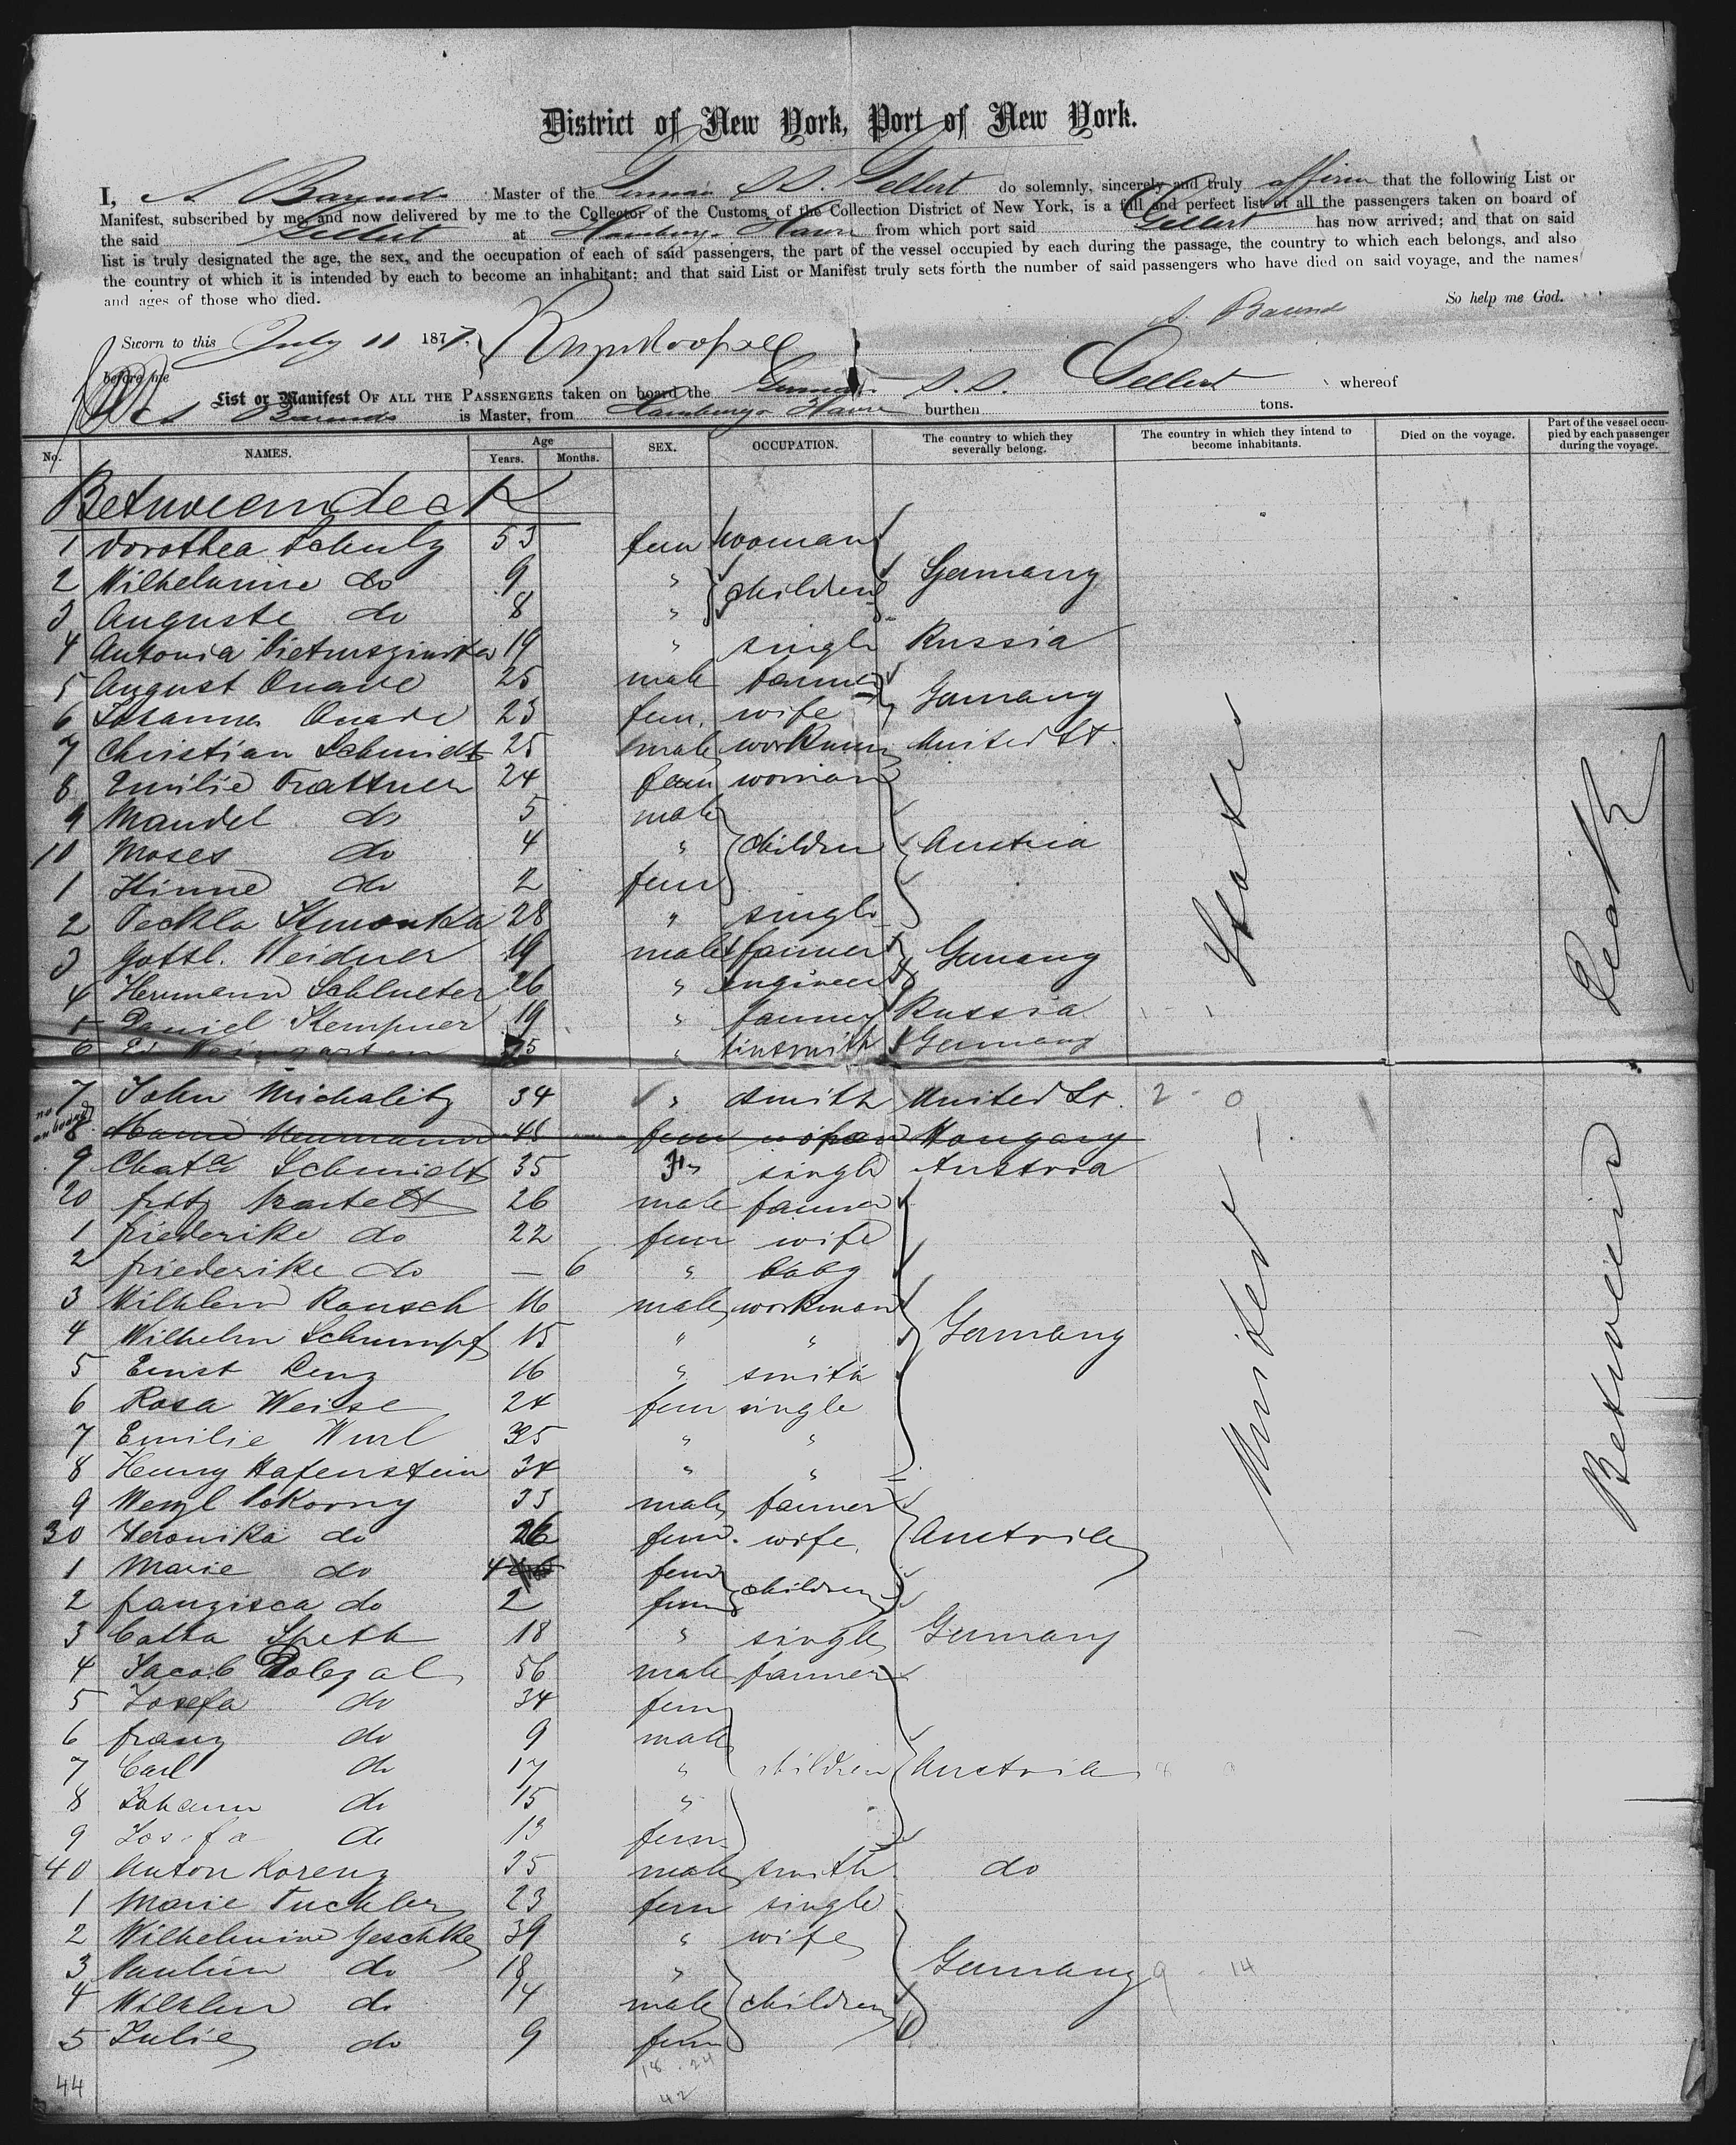 District of New York, Port of New York.
I, A Barends Master of the German S.S. Gellert do solemnly, sincerely and truly affirm that the following List or
Manifest, subscribed by me, and now delivered by me to the Collector of the Customs of the Collection District of New York, is a full and perfect list of all the passengers taken on board of
the said Gellert at Hamburg Havre from which port said Gellert has now arrived; and that on said
list is truly designated the age, the sex, and the occupation of each of said passengers, the part of the vessel occupied by each during the passage, the country to which each belongs, and also
the country of which it is intended by each to become an inhabitant; and that said List or Manifest truly sets forth the number of said passengers who have died on said voyage, and the names
and ages of those who died. So help me God.
A. Barends
Sworn to this July 11 1877.
before me
List or Manifest OF ALL THE PASSENGERS taken on board the German S.S. Gellert whereof
A Barends is Master, from Hamburg & Havre burthen tons.
No. NAMES. Age Years. Months. SEX. OCCUPATION. The country to which they severally belong. The country in which they intend to become inhabitants. Died on the voyage. Part of the vessel occupied by each passenger during the voyage.
Betweendeck
1 Dorothea Schulz 53 fem woman
2 Wilhelmine do 9 " children Germany
3 Auguste do 8 "
4 Antonia 19 " single Russia
5 August Quade 25 male farmer Germany
6 Johanna Quade 23 fem. wife
7 Christian Schmidt 25 male workman United St.
8 Emilie Trattner 24 fem woman
9 Mandel do 5 male
10 Moses do 4 " children Austria
1 Hinne do 2 fem
2 Teckla 28 " single
3 Gottl. Weidner 19 male farmer Germany
4 Hermann Schlueter 26 " engineer
5 Daniel Kempner 19 " farmer Russia
6 Ed Weingarten " tinsmith Germany
7 John Michalitz 34 " smith United St. 2 - 0
not on board 8 Neumann 48 fem woman Hongary
9 Schmidt 35 " single Austria
20 fritz Bartelt 26 male farmer
1 friederike do 22 fem wife
2 friederike do — 6 " baby
3 Wilhlem Rausch 16 male workman
4 Wilhelm Schumpf 15 " " Germany
5 Ernst Renz 16 " smith
6 Rosa Weise 24 fem single
7 Emilie Wurl 35 " "
8 Henny Hafenstein 34 " "
9 Wenzl Pokorny 33 male farmer
30 Veronika do 26 fem. wife Austria
1 Marie do 4 fem children
2 franzisca do 2 fem
3 Catha Speth 18 " single Germany
4 Jacob Dolezal 56 male farmer
5 Josefa do 34 fem
6 franz do 9 male
7 Carl do 17 " children Austria
8 Johann do 15 "
9 Josefa do 13 fem
40 Anton Korenz 25 male smith do
1 Marie Tuchler 23 fem single
2 Wilhelmine Geschke 39 " wife
3 Paulin do 18 " Germany 9 - 14
4 Wilhlem do 14 male children
5 Julie do 9 fem
18 . 24
44 42
United States
Betweendeck